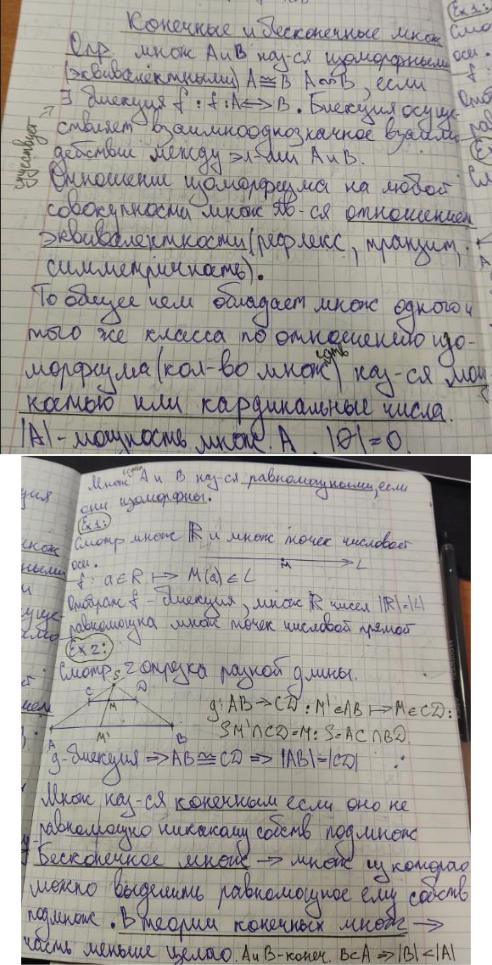 Конечные и бесконечные множ
Опр множ А и В наз-ся изоморфными
(эквивалентными) A≅B A∾B, если
∃ биекция f : f: A⟺B. Биекция осуще-
ствляет взаимнооднозначное взаимо
действие между эл-ами А и В.
существует
Отношение изоморфизма на любой
совокупности множ яв-ся отношением
эквивалентности (рефлекс, транзит,
симметричность).
То общее чем обладает множ одного и
того же класса по отношению изо-
морфизма (кол-во множ) наз-ся мощ
ностью или кардинальные числа.
|A| - мощность множ. A. |∅|=0.
Множ А и В наз-ся равномощными, если
они изоморфны.
Ex 1:
Смотр множ ℝ и множ точек числовой
оси.
M L
f: a∈ℝ ↦ M(a)∈L
Отображ f - биекция, множ ℝ чисел |ℝ|=|L|
равномощна множ точек числовой прямой
Ex 2:
Смотр 2 отрезка разной длины.
S
C D
M
A M' B
g: AB→CD: M'∈AB ↦ M∈CD:
SM'∩CD=M: S=AC∩BD.
g-биекция ⇒ AB≅CD ⇒ |AB|=|CD|
Множ наз-ся конечным если оно не
равномощно никакому собств подмнож
Бесконечное множ → множ из которго
можно выделить равномощное ему собств
подмнож. В теории конечных множ →
часть меньше целого. А и В-конеч. B⊂A ⇒ |B|<|A|